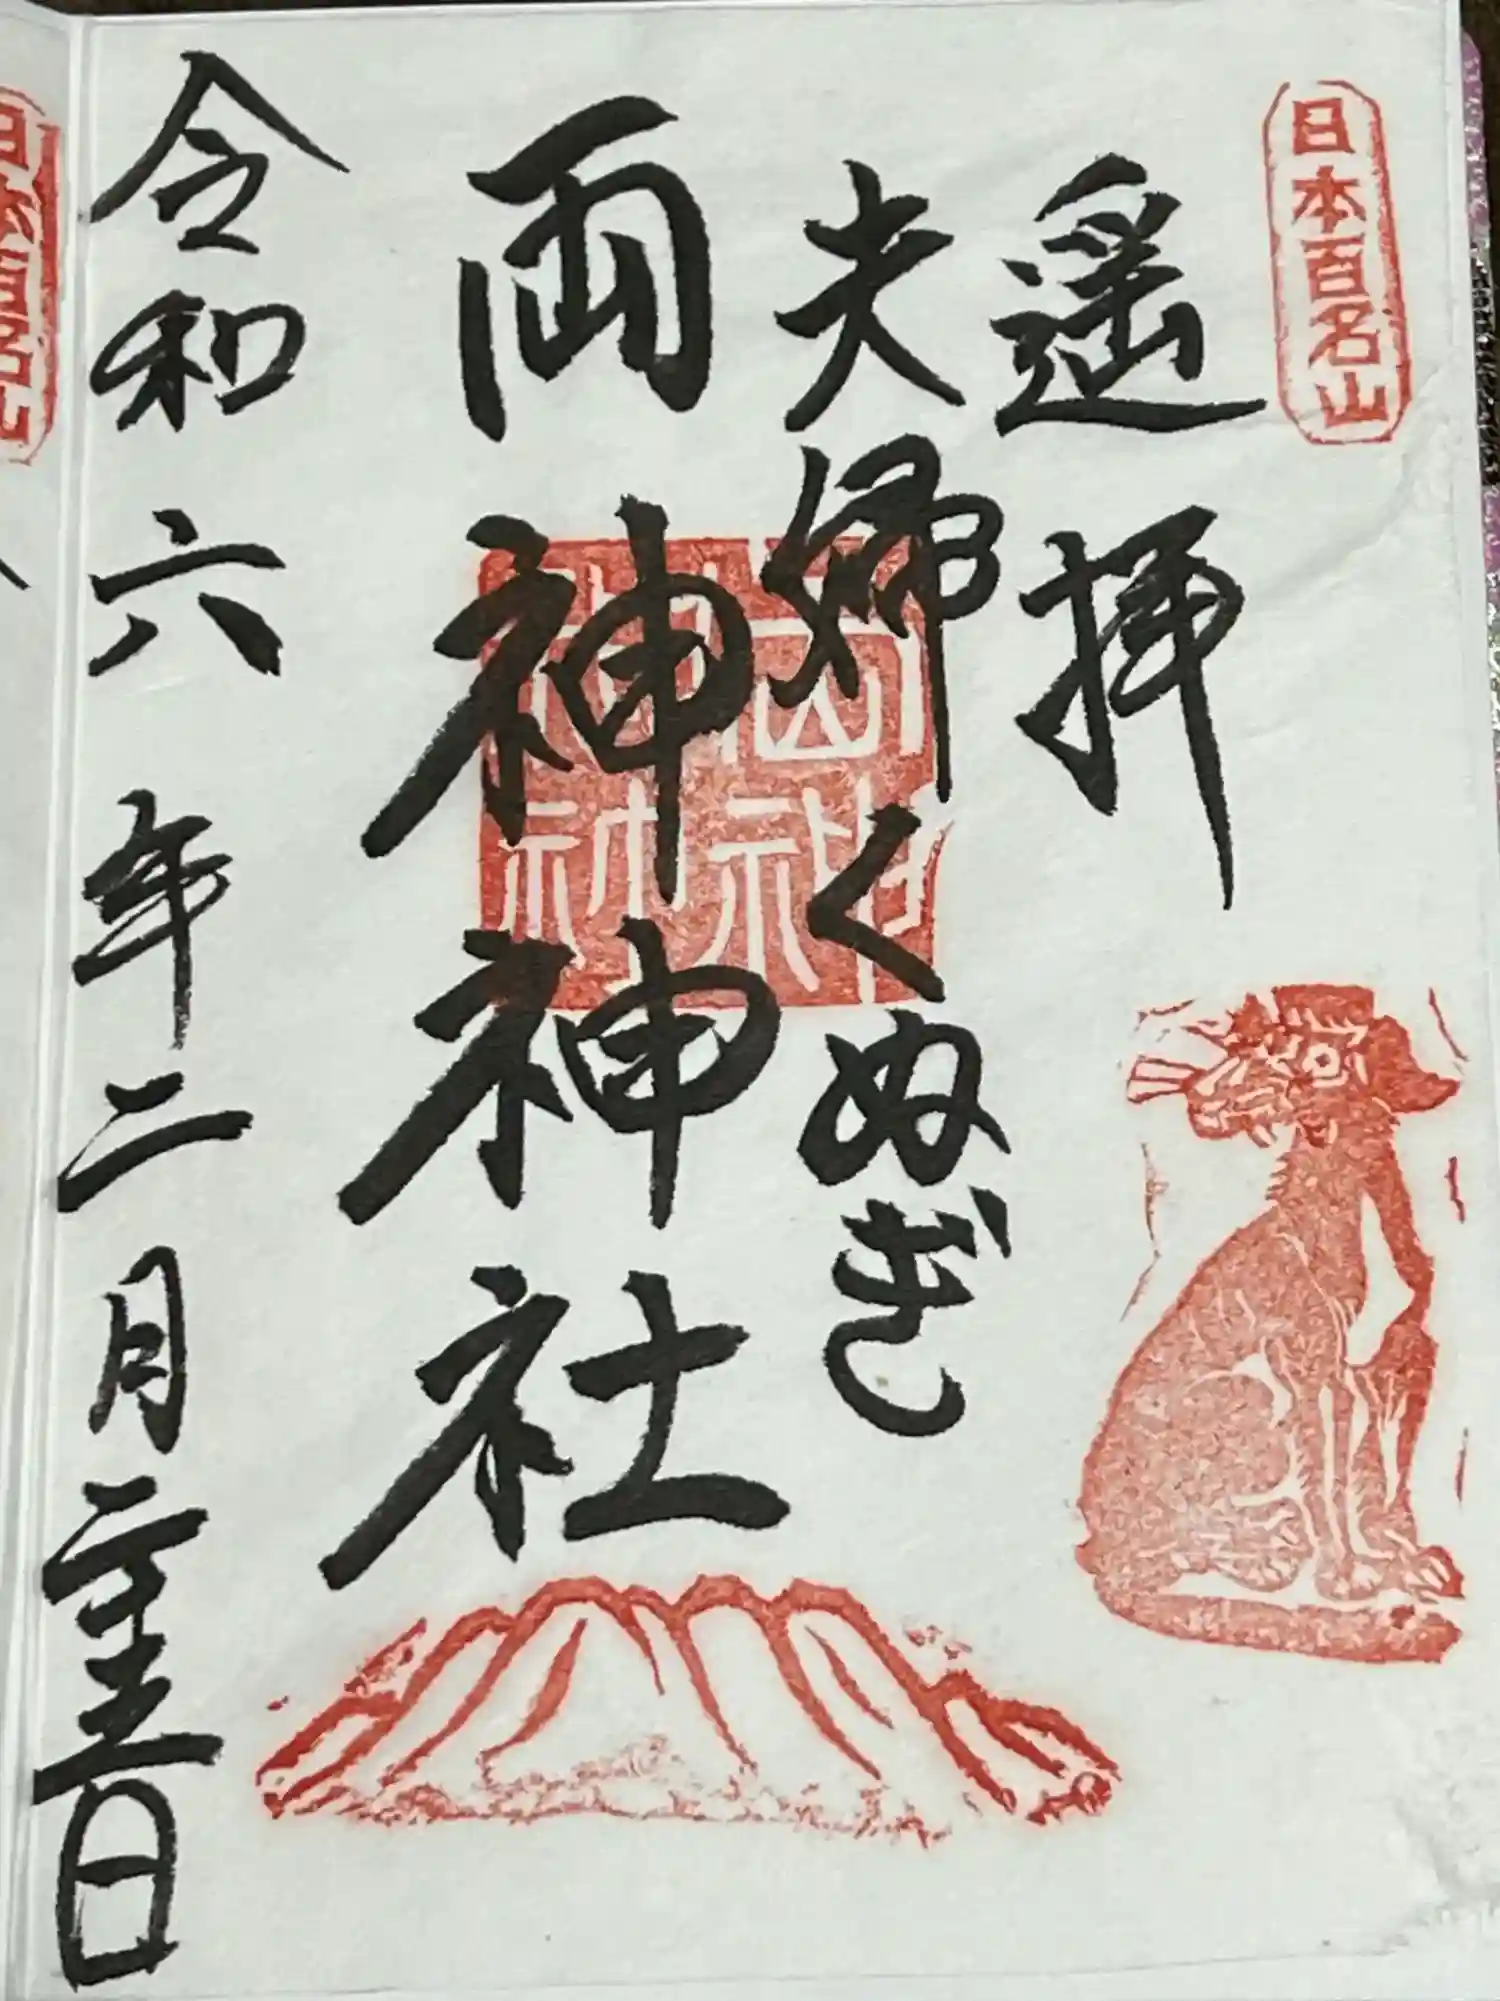 日本百名山
遥拝
夫婦くぬぎ
両神神社
令和六年二月二十五日